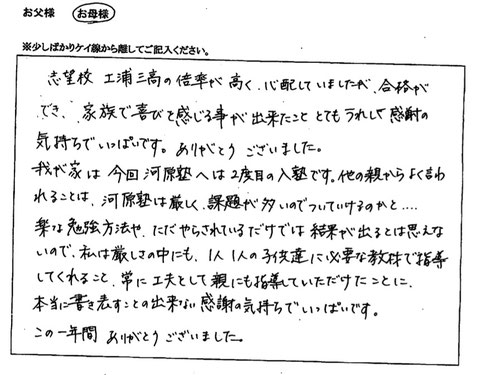 お父様 お母様
※少しばかりケイ線から離してご記入ください。
志望校 土浦三高の倍率が高く、心配していましたが、合格が
でき、家族で喜びを感じる事が出来たこと とてもうれしく感謝の
気持ちでいっぱいです。ありがとう ございました。
我が家は 今回 河原塾へは2度目の入塾です。他の親からよく言わ
れることは、河原塾は厳しく、課題が多いのでついていけるのかと....
楽な勉強方法や、ただやらされているだけでは 結果が出るとは思えな
いので、私は厳しさの中にも、1人1人の子供達に必要な教材で指導
してくれること、常に工夫として親にも指導していただけたことに、
本当に書き表すことの出来ない感謝の気持ちでいっぱいです。
この一年間 ありがとう ございました。